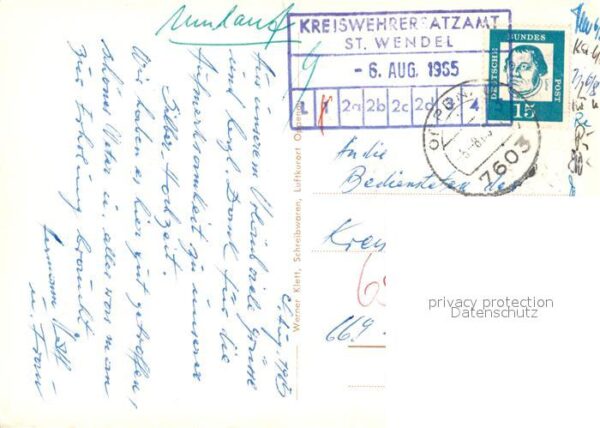 Umlauf
KREISWEHRERSATZAMT
ST. WENDEL
- 6. AUG. 1965
1 2a 2b 2c 2d 4
DEUTSCHE BUNDESPOST
15
OPPENAU
7603
Aug. 1965
Aus unserem Urlaub viele Grüsse
und herzl. Dank für die
Aufmerksamkeit zu unserer
Silber-Hochzeit.
Wir haben es hier gut getroffen,
schönes Wetter u. alles was man
zur Erholung braucht.
Hermann
u. Frau
Werner Klett, Schreibwaren, Luftkurort Oppenau
An die
Bediensteten des
Kreis
669
privacy protection
Datenschutz